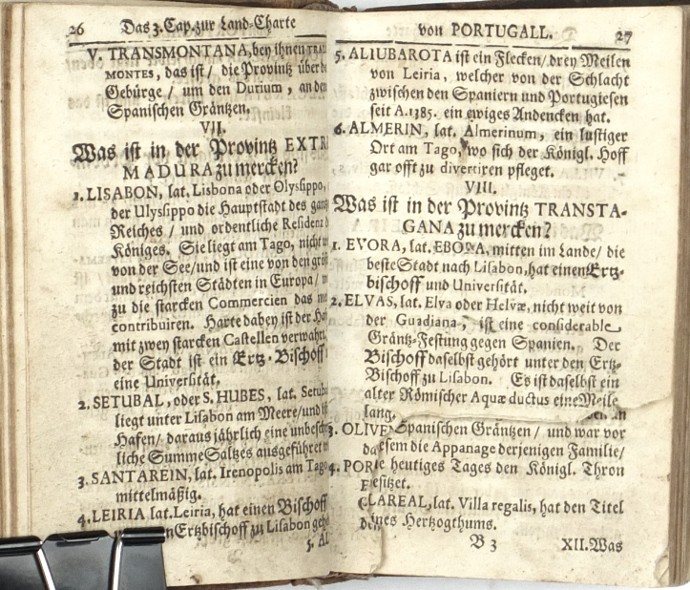 26 Das 3. Cap. zur Land-Charte
V. TRANSMONTANA, bey ihnen TRA
MONTES, das ist / die Provintz über d
Gebürge / um den Durium, an de
Spanischen Gräntzen.
VII.
Was ist in der Provintz EXTR
MADURA zu mercken?
1. LISABON, lat. Lisbona oder Olysippo,
der Ulysippo die Hauptstadt des gan
Reiches / und ordentliche Residentz
Königes. Sie liegt am Tago, nicht w
von der See / und ist eine von den grö
und reichsten Städten in Europa / w
zu die starcken Commercien das m
contribuiren. Harte dabey ist der Ha
mit zwey starcken Castellen verwahrt,
der Stadt ist ein Ertz-Bischoff
eine Universität.
2. SETUBAL, oder S. HUBES, lat. Setub
liegt unter Lisabon am Meere / und
Hafen / daraus jährlich eine unbesch
liche Summe Saltzes ausgeführet w
3. SANTAREIN, lat. Irenopolis am Tag
mittelmäßig.
4. LEIRIA lat. Leiria, hat einen Bischoff
n Ertzbischoff zu Lisabon geh
5. AL
von PORTUGALL. 27
5. ALIUBAROTA ist ein Flecken / drey Meilen
von Leiria, welcher von der Schlacht
zwischen den Spaniern und Portugiesen
seit A. 1385. ein ewiges Andencken hat.
6. ALMERIN, lat. Almerinum, ein lustiger
Ort am Tago, wo sich der Königl. Hoff
gar offt zu divertiren pfleget.
VIII.
Was ist in der Provintz TRANSTA-
GANA zu mercken?
1. EVORA, lat. EBORA, mitten im Lande / die
beste Stadt nach Lisabon, hat einen Ertz-
bischoff und Universität.
2. ELVAS, lat. Elva oder Helvæ, nicht weit von
der Guadiana, ist eine considerable
Gräntz-Festung gegen Spanien. Der
Bischoff daselbst gehört unter den Ertz-
Bischoff zu Lisabon. Es ist daselbst ein
alter Römischer Aquæ ductus eine Meile
lang.
3. OLIVE Spanischen Gräntzen / und war vor
da esem die Appanage derjenigen Familie /
4. POR e heutiges Tages den Königl. Thron
esitzet.
LAREAL, lat. Villa regalis, hat den Titel
es Hertzogthums.
B 3 XII. Was